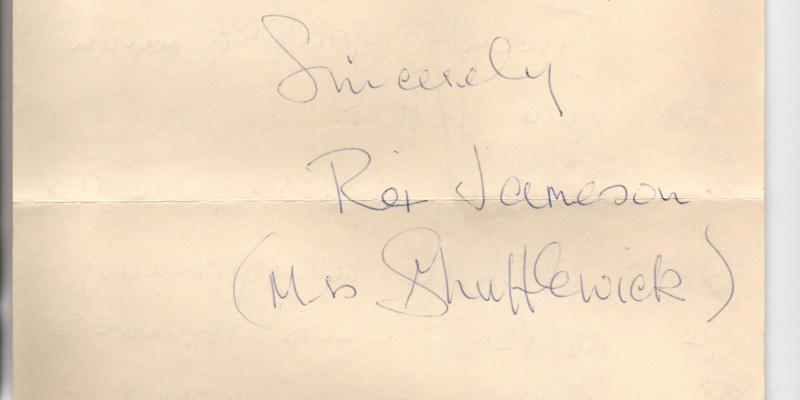 Sincerely
Rex Jameson
(Mrs Shufflewick)